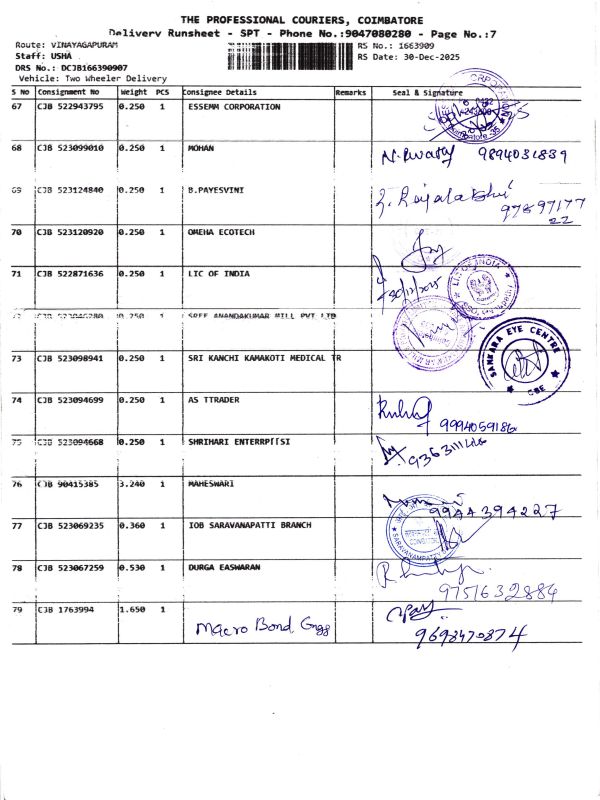 THE PROFESSIONAL COURIERS, COIMBATORE
Delivery Runsheet - SPT - Phone No.:9047080280 - Page No.:7
Route: VINAYAGAPURAM RS No.: 1663909
Staff: USHA RS Date: 30-Dec-2025
DRS No.: DCJB166390907
Vehicle: Two Wheeler Delivery
S No Consignment No Weight PCS Consignee Details Remarks Seal & Signature
67 CJB 522943795 0.250 1 ESSEMM CORPORATION
68 CJB 523099010 0.250 1 MOHAN 9894031839
69 CJB 523124840 0.250 1 B.PAYESVINI
70 CJB 523120920 0.250 1 OMEHA ECOTECH
71 CJB 522871636 0.250 1 LIC OF INDIA LIC OF INDIA
0.250 1 SREE ANANDAKUMAR MILL PVT LTD
73 CJB 523098941 0.250 1 SRI KANCHI KAMAKOTI MEDICAL TR SANKARA EYE CENTRE CBE
74 CJB 523094699 0.250 1 AS TTRADER 9994059186
75 CJB 523094668 0.250 1 SHRIHARI
76 CJB 90415385 3.240 1 MAHESWARI 9944394227
77 CJB 523069235 0.360 1 IOB SARAVANAPATTI BRANCH
78 CJB 523067259 0.530 1 DURGA EASWARAN 9751632884
79 CJB 1763994 1.650 1 Macro Bond Engg 9698470874